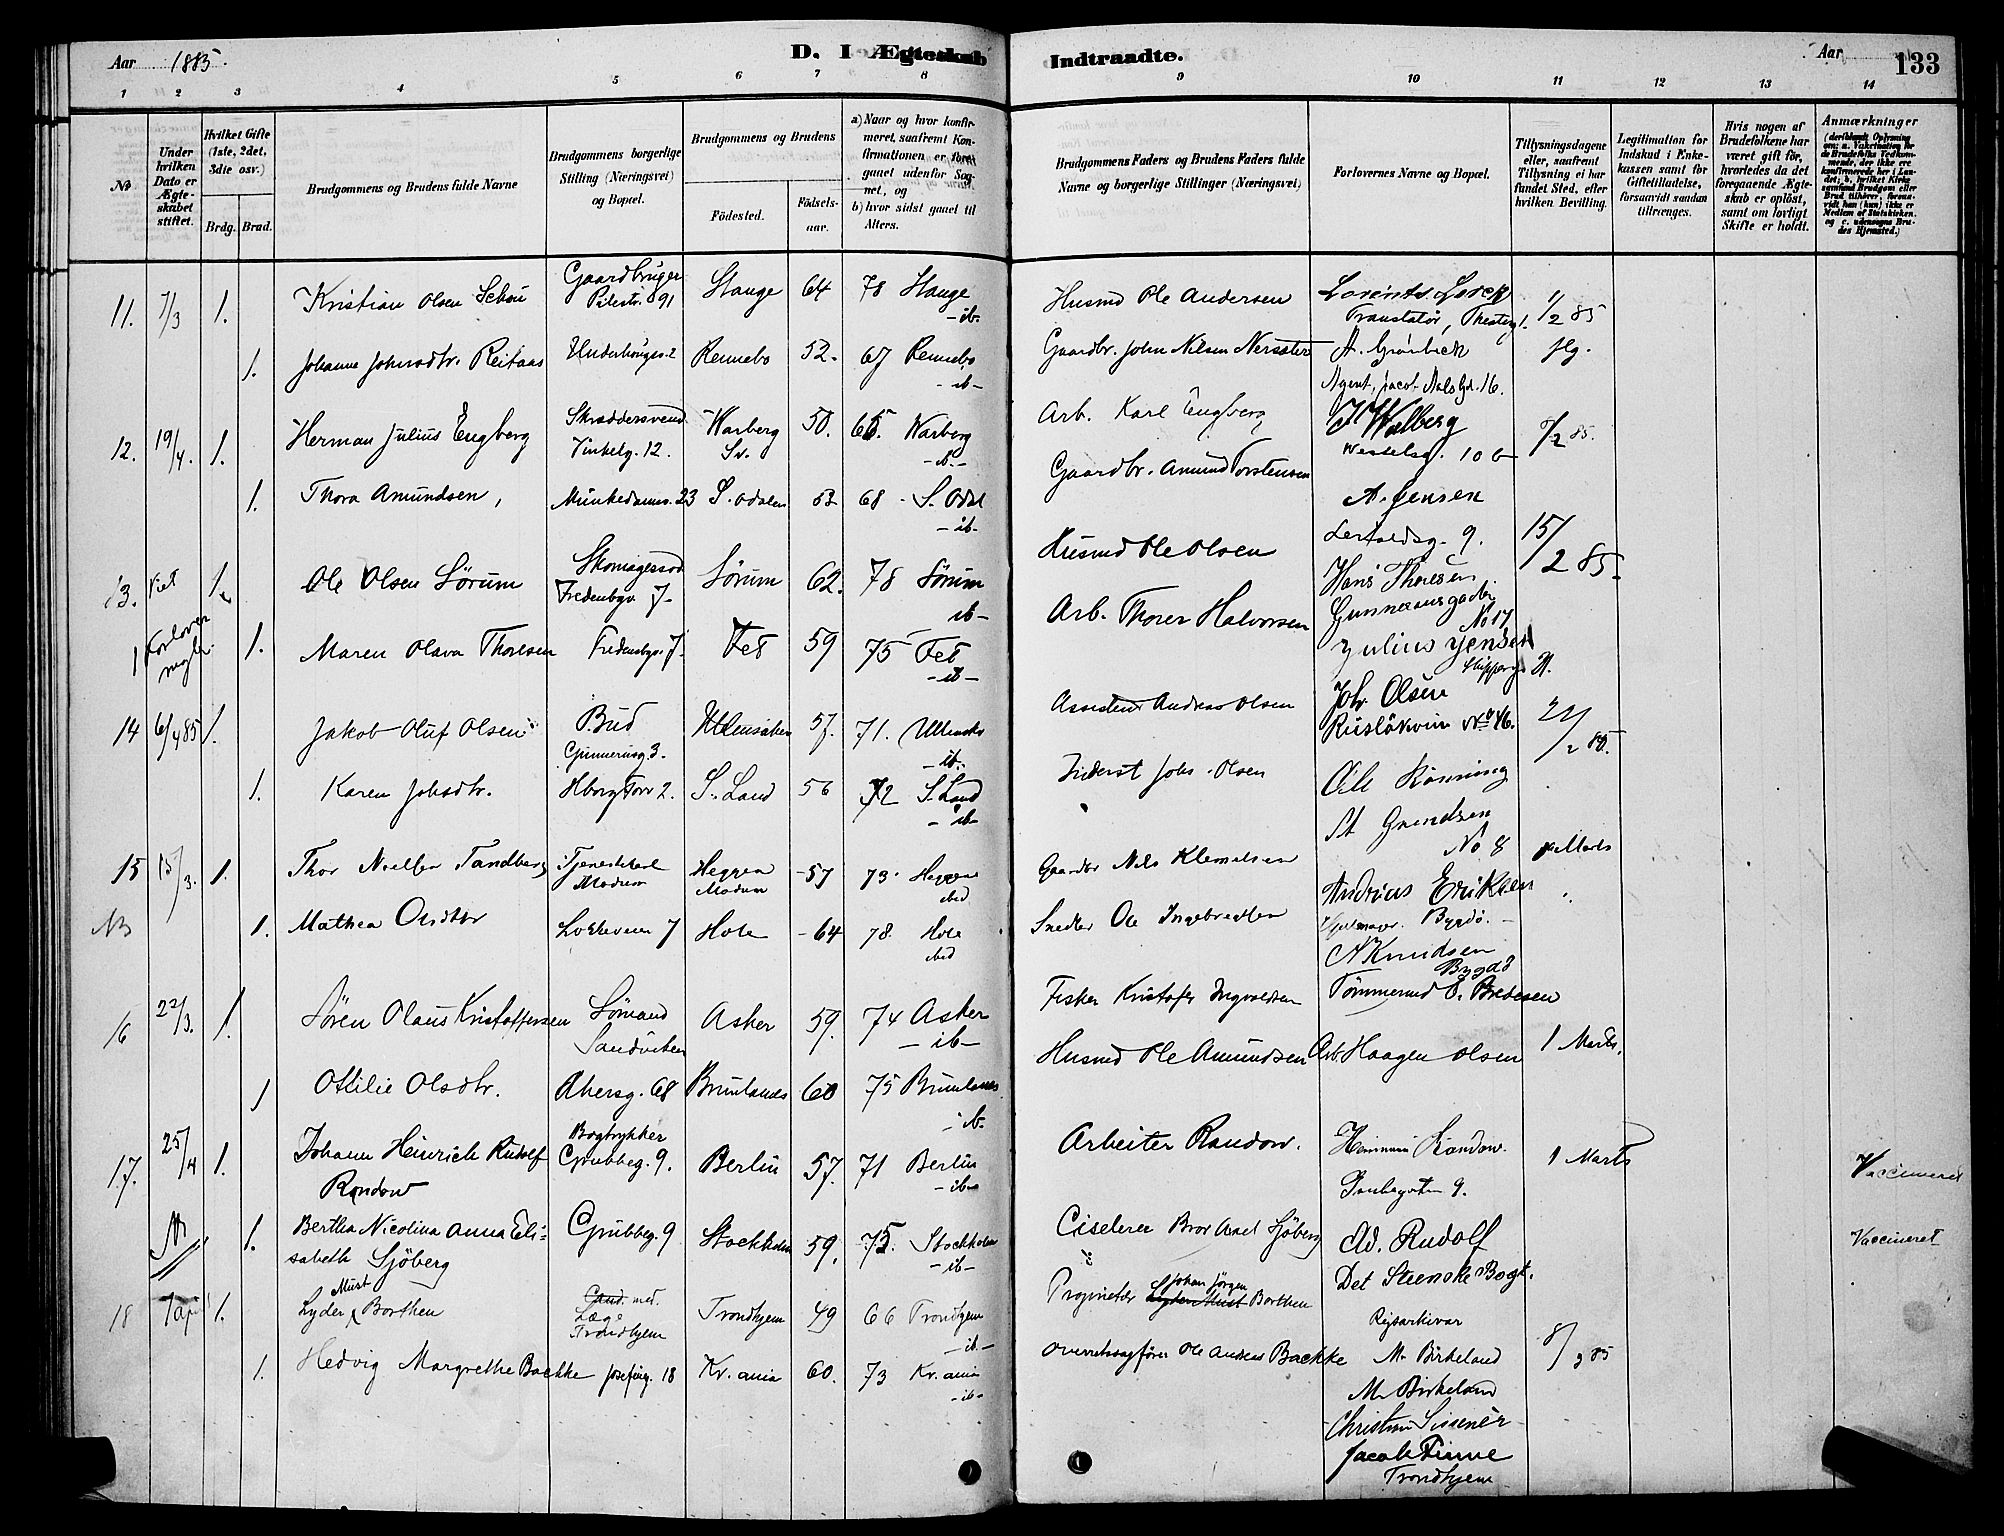 Aar 1885.
D. I Ægteskab Indtraadte.
Aar
133
1 2 3 4 5 6 7 8 9 10 11 12 13 14
No
Under hvilken Dato er Ægteskabet stiftet.
Hvilket Gifte (1ste, 2det, 3die osv.)
Brdg. Brud.
Brudgommens og Brudens fulde Navne
Brudgommens borgerlige Stilling (Næringsvei) og Bopæl.
Brudgommens og Brudens
Födested.
Födsels-aar.
a) Naar og hvor konfirmeret, saafremt Konfirmationen er foregaaet udenfor Sognet, og
b) hvor sidst gaaet til Alters.
Brudgommens Faders og Brudens Faders fulde Navne og borgerlige Stillinger (Næringsvei)
Forlovernes Navne og Bopæl.
Tillysningsdagene eller, saafremt Tillysning ei har fundet Sted, efter hvilken Bevilling.
Legitimation for Indskud i Enkekassen samt for Giftetilladelse, forsaavidt saadan tiltrænges.
Hvis nogen af Brudefolkene har været gift før, hvorledes da det foregaaende Ægteskab er opløst, samt om lovligt Skifte er holdt.
Anmærkninger
11. 7/3 1. Kristian Olsen Schou Gaardbruger Pilestr. 91 Stange 64 78 Stange -ib- Husmd Ole Andersen Translatør, 1/2 85
1. Johanne Johnsdtr. Reitaas Rennebo 52. 67 Rennebo -ib- Gaardbr. John Nilsen A. Grönbeck
Agent, Jacob Aals Gd. 16.
12. 19/4. 1. Herman Julius Engberg Skræddersvend Vinkelg. 12. Warberg Sv. 50. 65. Warberg -ib- Arb. Karl Engberg Wallberg 10 b 8/2 85.
1. Thora Amundsen, Munkedamsv. 23 S. Odalen 53 68 - S. Odal -ib- Gaardbr. Amund Torstensen A. Jensen
9.
13. Viet 1. Ole Olsen Sörum Fredensbgv. 7 Sörum 62. 78 Sörum ib- Husmd Ole Olsen Hans Thoresen No 17 15/2 85.
Forlover 1. Maren Olava Thoresen Fredensbgv. 7. Fet 59 75 Fet -ib- Arb. Thorer Halvorsen Julius Jensen
14 6/4 85 1. Jakob Oluf Olsen Bud Gunnerusg. 3. Ullensaker 57. 71. Ullensaker -ib- Assistent Andreas Olsen Joh. Olsen Ruslökvein No 46. 22/2 85.
1. Karen Johsdtr. 2. S. Land 56 72 S. Land -ib- Inderst Johs. Olsen Ole Rönning
St Grændsen No 8
15 15/3. 1. Thor Nielsen Tandberg Tjenestekarl Modum Heggen Modum -57 73. Heggen ibid Gaardbr Nils Klemetsen Andreas Eriksen Bygdö. Marts
NB 1. Mathea Olsdtr Lökkeveien 7 Hole -64 78. Hole ibid Snedker Ole Ingebretsen A Knudsen Bygdö
16 22/3. 1. Sören Olaus Kristoffersen Sömand Sandviken Asker 59. 74 Asker -ib- Fisker Kristofer Ingvaldsen Tömmermd E. Bredesen
1 Ottilie Olsdtr. Akersg. 68 Brunlanes 60 75 Brunlanes -ib- Husmd Ole Amundsen Arb Haagen Olsen 1 Marts.
17. 25/4 1. Johann Heinrich Rudolf Randow Bogtrykker Grubbeg. 9. Berlin 57. 71 Berlin -ib- Arbeiter Randow. Randow. 9. 1 Marts Vaccineret
1. Bertha Nicolina Anna Elisabeth Sjöberg Grubbeg. 9 Stockholm 59. 75. Stockholm -ib- Ciselerer Bror Axel Sjöberg Ad. Rudolf Vaccineret
Det Steenske Bogt.
18 1. Lyder Must Borthen Cand. med. Læge Trondhjem Trondhjem 49 66 Trondhjem -ib- Proprietær Lyder Must Johan Jörgen Borthen Rigsarkivar
1. Hedvig Margrethe Backke Josefinegt. 18 Kr.ania 60. 73 Kr.ania -ib- Overretssagförer Ole Andreas Backke M. Birkeland 8/3 85
M. Birkeland
Christian Sissenér
Jacob Finne
Trondhjem